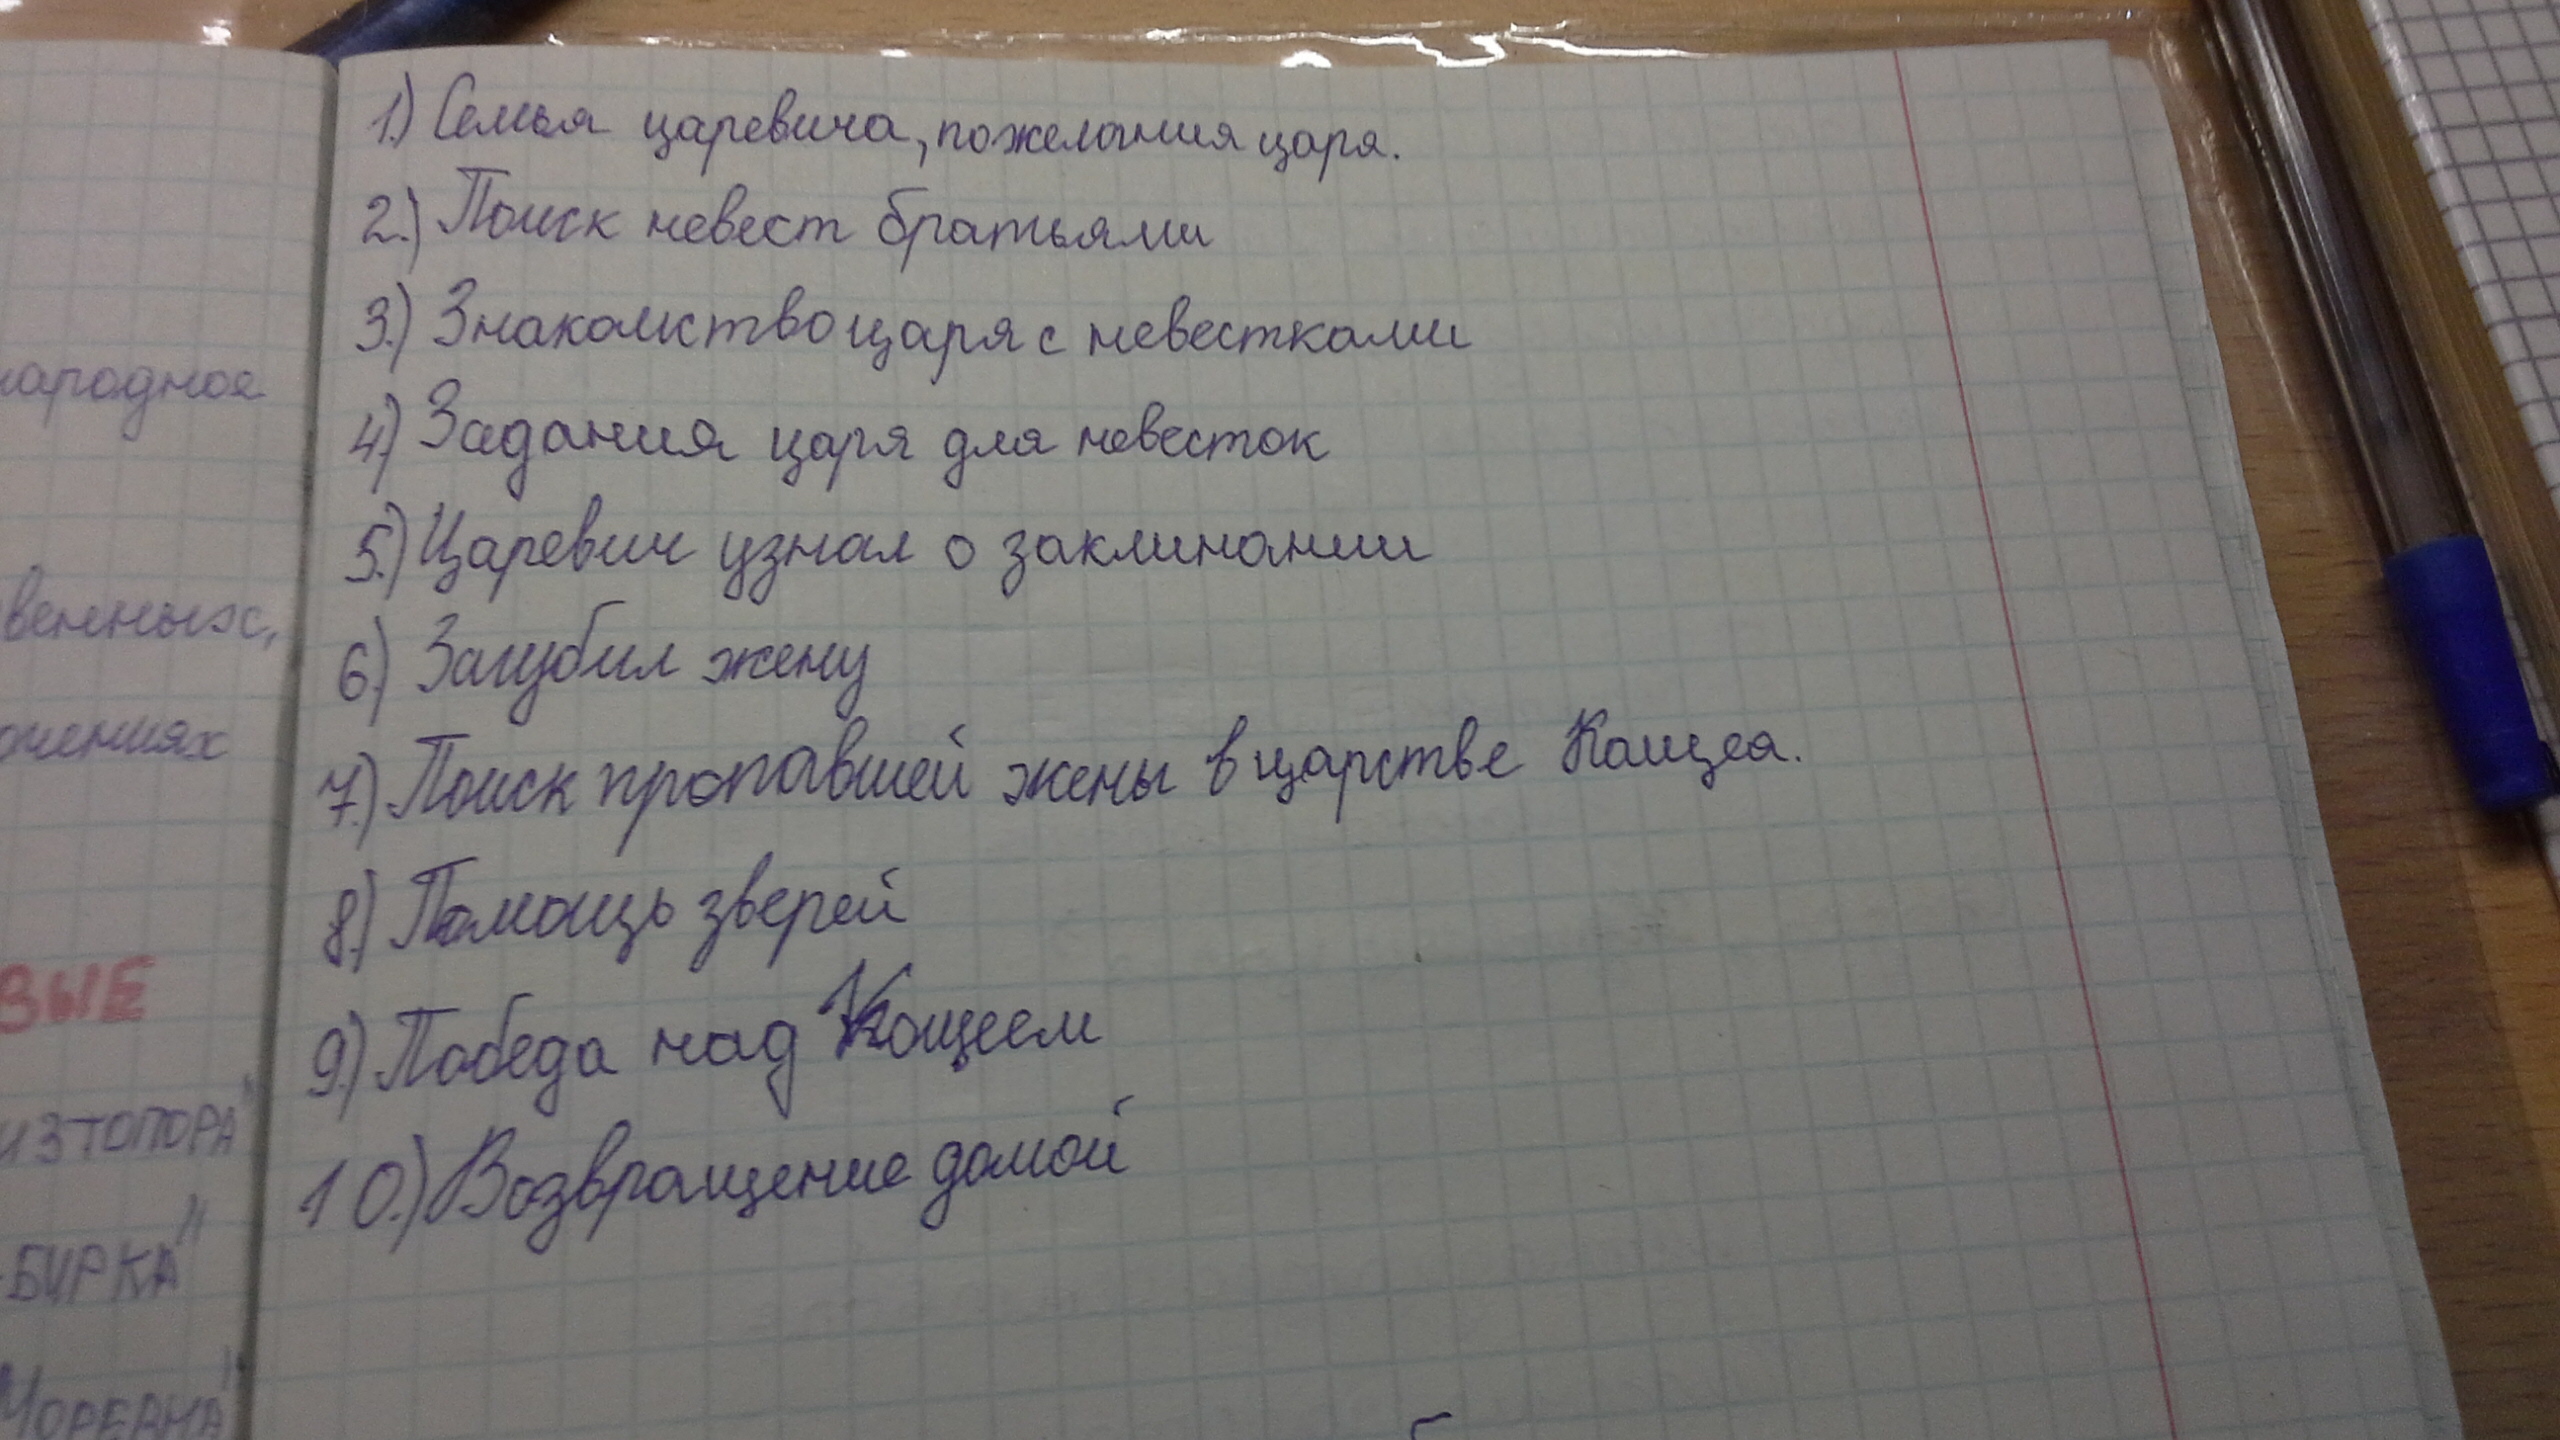 1.) Семья царевича, пожелания царя.
2.) Поиск невест братьями
3.) Знакомство царя с невестками
4.) Задания царя для невесток
5.) Царевич узнал о заклинании
6.) Загубил жену
7.) Поиск пропавшей жены в царстве Кощея.
8.) Помощь зверей
9.) Победа над Кощеем
10.) Возвращение домой
народное
венных,
очениях
ВЫЕ
ИЗ ТОПОРА"
-БУРКА"
МОРЕВНА"